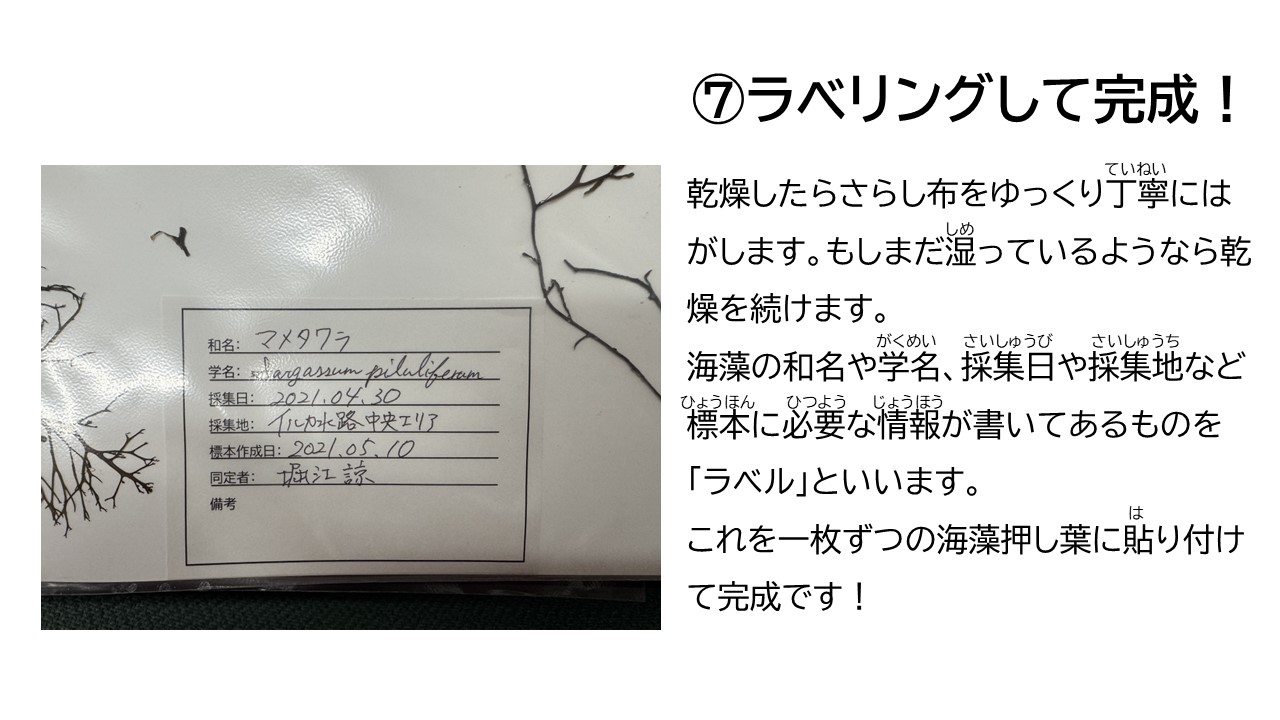 ⑦ラベリングして完成！
乾燥したらさらし布をゆっくり丁寧には
がします。もしまだ湿っているようなら乾
燥を続けます。
海藻の和名や学名、採集日や採集地など
標本に必要な情報が書いてあるものを
「ラベル」といいます。
これを一枚ずつの海藻押し葉に貼り付け
て完成です！
ていねい
しめ
がくめい さいしゅうび さいしゅうち
ひょうほん ひつよう じょうほう
は
和名： マメタワラ
学名： Sargassum piluliferum
採集日： 2021.04.30
採集地： イルカ水路中央エリア
標本作成日： 2021.05.10
同定者： 堀江 諒
備考